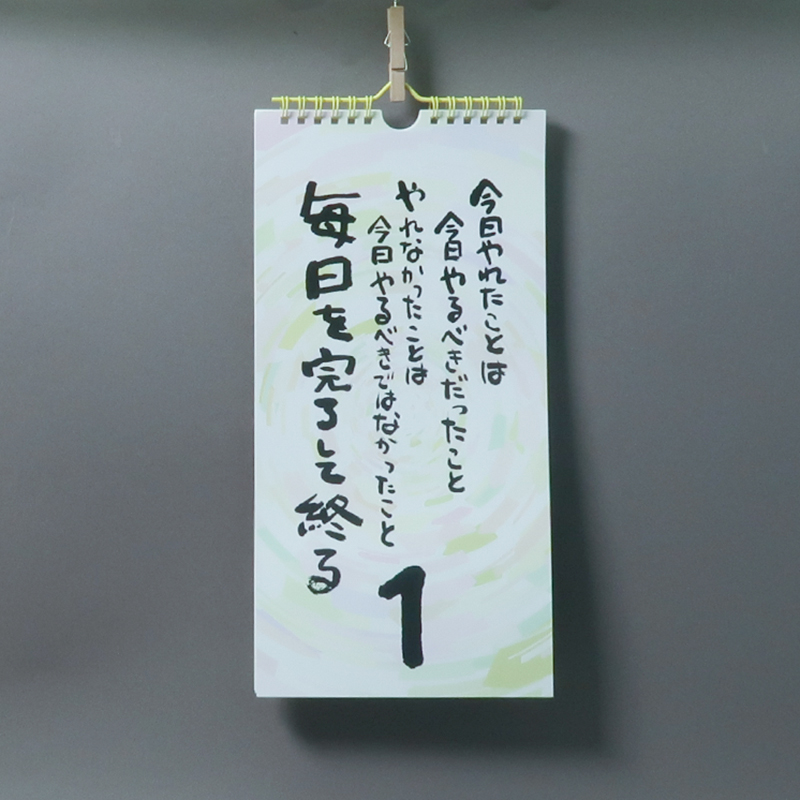 今日やれたことは
今日やるべきだったこと
やれなかったことは
今日やるべきではなかったこと
毎日を完了して終る
1